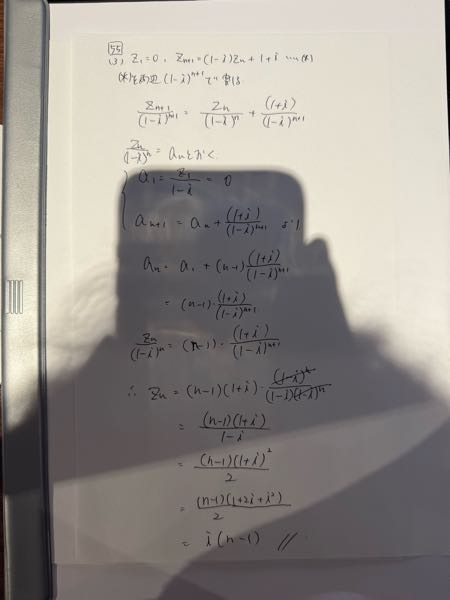 55
(3) Z₁=0, Zn+1=(1-i)Zn+1+i …(*)
(*)を両辺(1-i)^n+1で割る
Zn+1/(1-i)^n+1 = Zn/(1-i)^n + (1+i)/(1-i)^n+1
Zn/(1-i)^n = anとおく
a₁ = Z₁/1-i = 0
an+1 = an + (1+i)/(1-i)^n+1 より
an = a₁ + (n-1)(1+i)/(1-i)^n+1
= (n-1)・(1+i)/(1-i)^n+1
Zn/(1-i)^n = (n-1)・(1+i)/(1-i)^n+1
∴ Zn = (n-1)(1+i)・(1-i)^n/(1-i)(1-i)^n
= (n-1)(1+i)/1-i
= (n-1)(1+i)²/2
= (n-1)(1+2i+i²)/2
= i(n-1) //